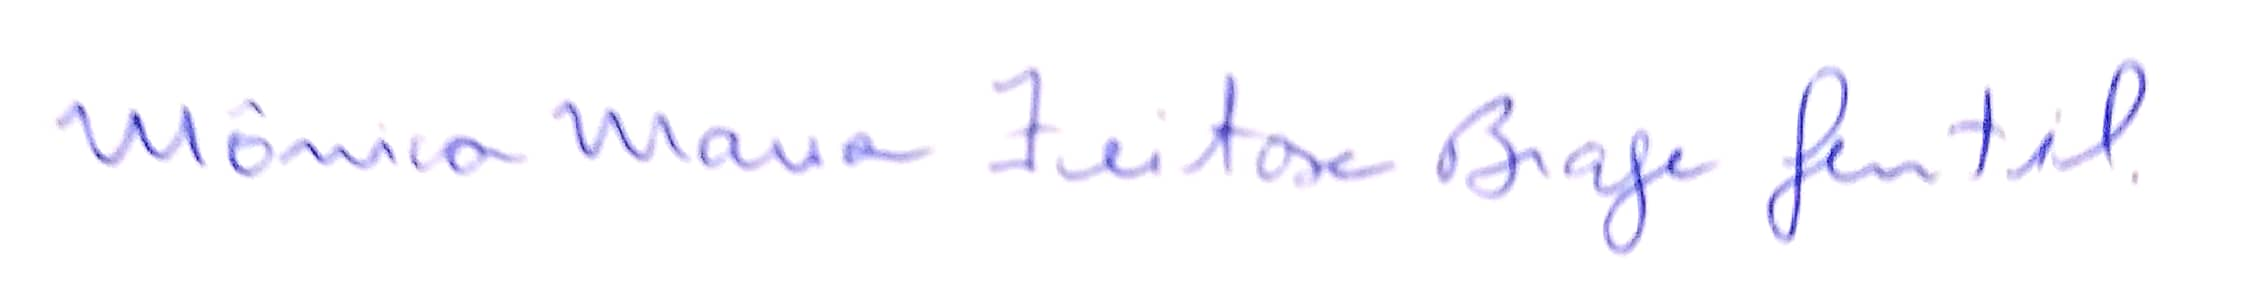 Mônica Maria Feitosa Braga Gentil.